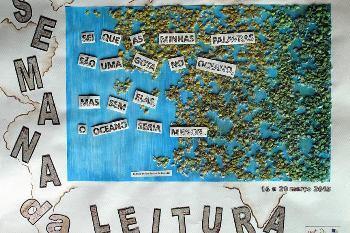 SEI QUE AS MINHAS PALAVRAS
SÃO UMA GOTA NO OCEANO,
MAS SEM ELAS
O OCEANO SERIA MENOR...
16 a 20 março 2015
SEMANA
da LEITURA